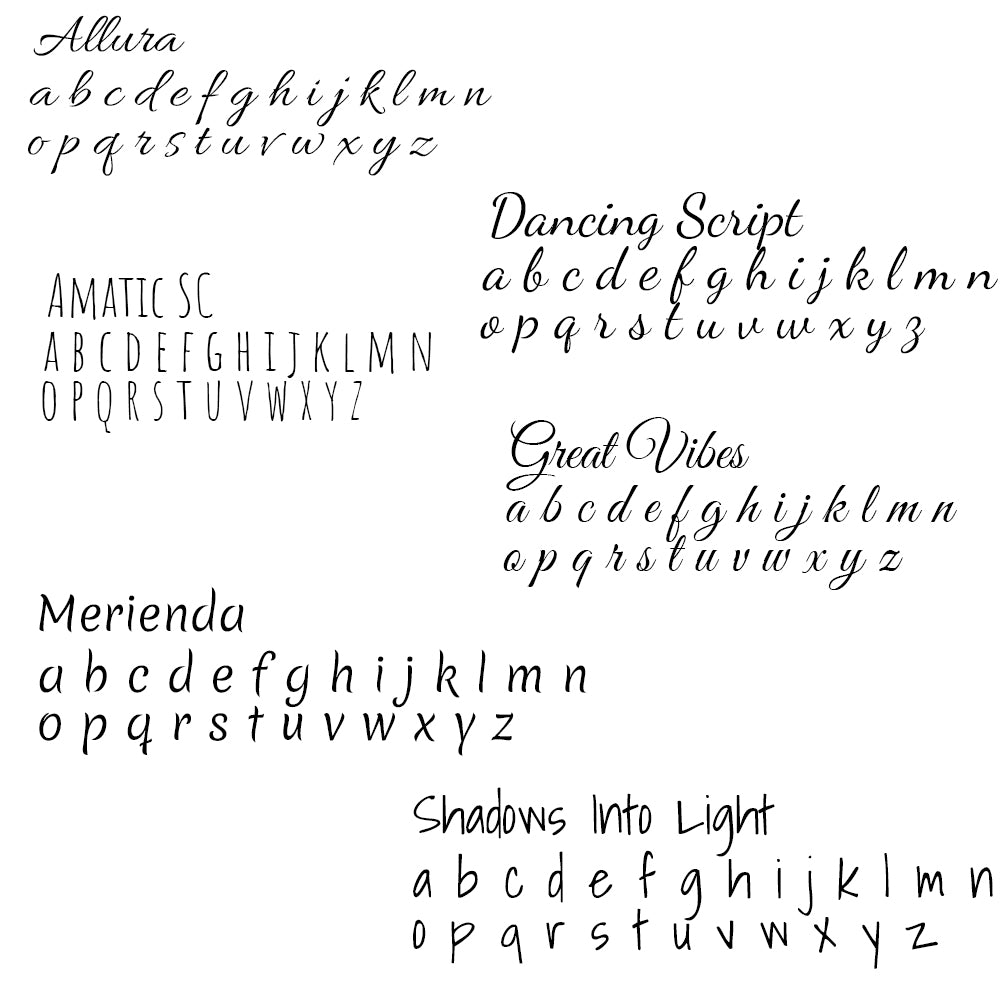 Allura
a b c d e f g h i j k l m n
o p q r s t u v w x y z
Dancing Script
a b c d e f g h i j k l m n
o p q r s t u v w x y z
AMATIC SC
A B C D E F G H I J K L M N
O P Q R S T U V W X Y Z
Great Vibes
a b c d e f g h i j k l m n
o p q r s t u v w x y z
Merienda
a b c d e f g h i j k l m n
o p q r s t u v w x y z
Shadows Into Light
a b c d e f g h i j k l m n
o p q r s t u v w x y z